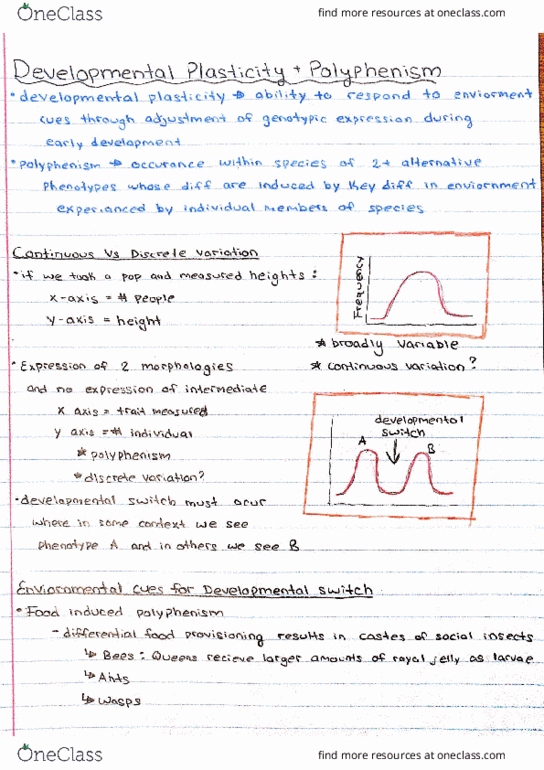 OneClass
find more resources at oneclass.com
Developmental Plasticity + Polyphenism
• developmental plasticity → ability to respond to enviorment
cues through adjustment of genotypic expression during
early development
• polyphenism → occurance within species of 2+ alternative
phenotypes whose diff are induced by key diff in enviornment
experianced by individual members of species
Continuous Vs Discrete variation
• if we took a pop and measured heights :
x-axis = # people
y-axis = height
Frequency
* broadly variable
* continuous variation?
• Expression of 2 morphologies
and no expression of intermediate
x axis = trait measured
y axis = # individual
* polyphenism
* discrete variation?
developmental
switch
A
B
• developmental switch must ocur
where in some context we see
phenotype A and in others we see B
Enviornmental cues for Developmental switch
• Food induced polyphenism
- differential food provisioning results in castes of social insects
↳ Bees : Queens recieve larger amounts of royal jelly as larvae
↳ Ants
↳ Wasps
OneClass
find more resources at oneclass.com